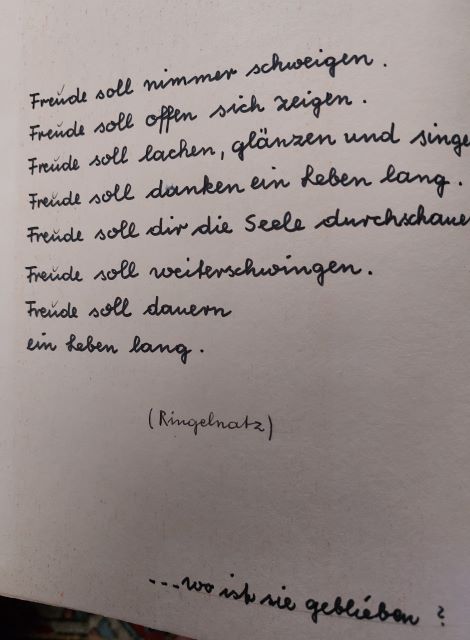 Freude soll nimmer schweigen.
Freude soll offen sich zeigen.
Freude soll lachen, glänzen und singe
Freude soll danken ein Leben lang.
Freude soll dir die Seele durchschaue
Freude soll weiterschwingen.
Freude soll dauern
ein Leben lang.
(Ringelnatz)
...wo ist sie geblieben ?